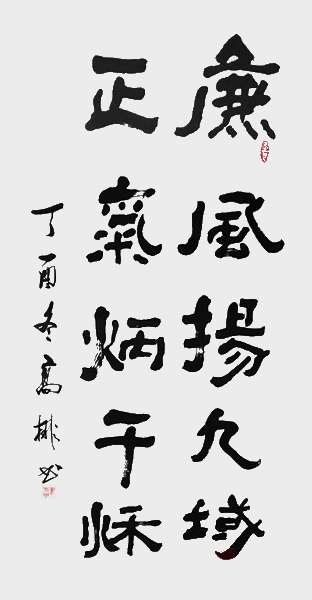 廉風揚九域
正氣炳千秌
丁酉冬高